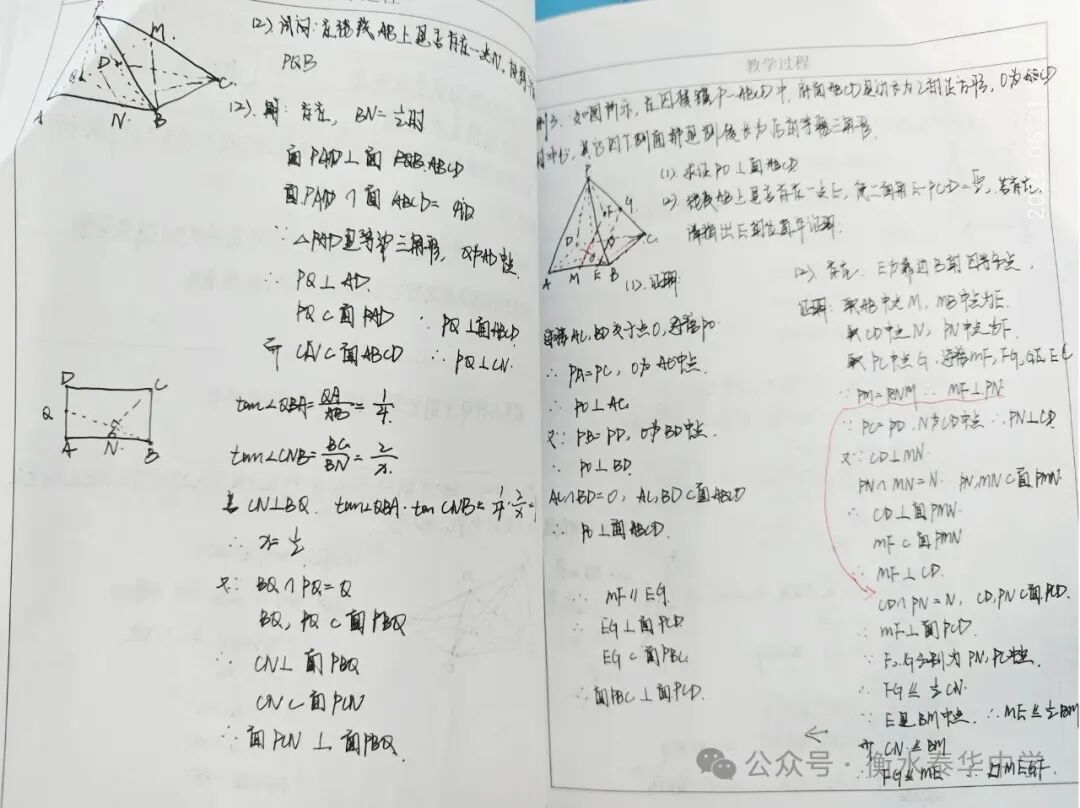 (2). 试问: 在线段AB上是否存在一点N, 使得
PQB
(2). 解: 存在, BN=½时
面PAD⊥面 ABCD
面PAD∩面 ABCD= AD
∵ △PAD是等边三角形, Q为AD中点
∴ PQ⊥AD.
PQ⊂面PAD ∴ PQ⊥面ABCD
而 CN⊂面ABCD ∴ PQ⊥CN.
tan∠QBA=QA/AB=1/4.
tan∠CNB=BC/BN=2/x.
CN⊥BQ. tan∠QBA·tan CNB=1/4·2/x=1
∴ x=½
又∵ BQ∩PQ=Q
BQ, PQ⊂面PBQ
∴ CN⊥面PBQ
CN⊂面PCN
∴ 面PCN⊥面PBQ.
P
M
D
Q
C
A
N.
B
D
C
Q
A
N.
B
教学过程
例3. 如图所示, 在四棱锥P-ABCD中, 底面ABCD是边长为2的正方形, O为ABCD
的中心, 其它四个侧面都是侧棱长为√5的等腰三角形.
(1) 求证PO⊥面ABCD
(2) 线段AB上是否存在一点E, 若存在.
请指出E的位置并证明.
P
F
G
D
C
A
M
E
B
(1). 证明:
连接AC, BD交于点O, 连接PO
∵ PA=PC, O为AC中点.
∴ PO⊥AC.
又∵ PB=PD, O为BD中点.
∴ PO⊥BD.
AC∩BD=O, AC, BD⊂面ABCD
∴ PO⊥面ABCD.
∴ MF∥EG.
∴ EG⊥面PCD
EG⊂面PBC
∴ 面PBC⊥面PCD.
(2) 存在. E为靠近B的四等分点.
证明: 取AB中点M, MB中点为E.
取CD中点N, PN中点为F.
取PC中点G. 连接MF, FG, GE, EC
∵ PM=PNM ∴ MF⊥PN
∵ PC=PD. N为CD中点 ∴ PN⊥CD.
又∵ CD⊥MN.
PN∩MN=N. PN, MN⊂面PMN.
∴ CD⊥面PMN.
MF⊂面PMN
∴ MF⊥CD.
CD∩PN=N, CD, PN⊂面PCD.
∴ MF⊥面PCD.
∵ F, G分别为PN, PC中点.
∴ FG⫽½CN.
∵ E是BM中点. ∴ ME⫽½BM
CN⫽BM
∴ FG⫽ME ∴ ▱MEGF.
公众号·衡水泰华中学